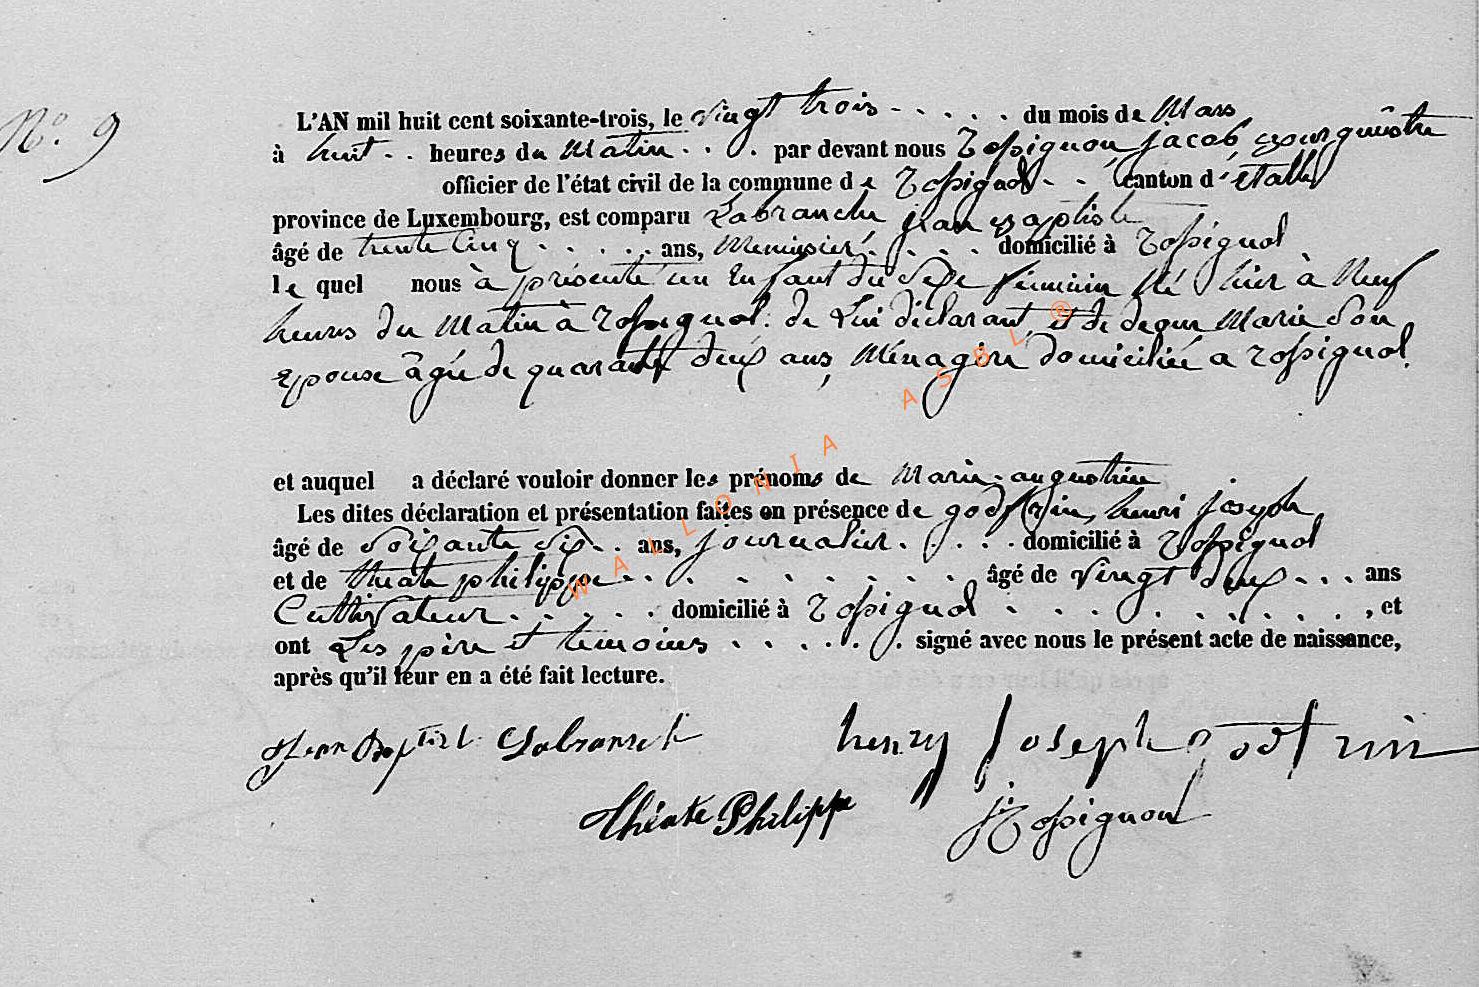 N° 9
L'AN mil huit cent soixante-trois, le vingt trois - . . . . du mois de Mars
à huit . . heures du Matin . . . . par devant nous Rossignon, jacob, Bourguêstre
officier de l'état civil de la commune de Rossignol - - canton d'étalle
province de Luxembourg, est comparu Labranche, jean Baptiste
âgé de trente Cinq - . . . . . ans, Menuisier, . . . . domicilié à Rossignol
le quel nous à présenté un Enfant du Sexe féminin Né hier à Neuf
heures du Matin à Rossignol: de Lui déclarant, et de Marie Son
Epouse âgée de quarante deux ans, Ménagère domiciliée a rossignol.
et auquel a déclaré vouloir donner les prénoms de Marie-augustine
Les dites déclaration et présentation faites en présence de godfrin, henri joseph
âgé de Soixante Six . . ans, journalier. . . . . domicilié à Rossignol
et de théate philippe - . . . . . . . . . âgé de vingt deux - . . ans
Cultivateur - . . . . . domicilié à Rossignol . . . . . . . . . , et
ont Les père et témoins - . . . . . . signé avec nous le présent acte de naissance,
après qu'il leur en a été fait lecture.
Jean Baptist Labranch
henry Joseph godfrin
Théate Philippe
J: Rossignon
WALLONIA ASBL ®